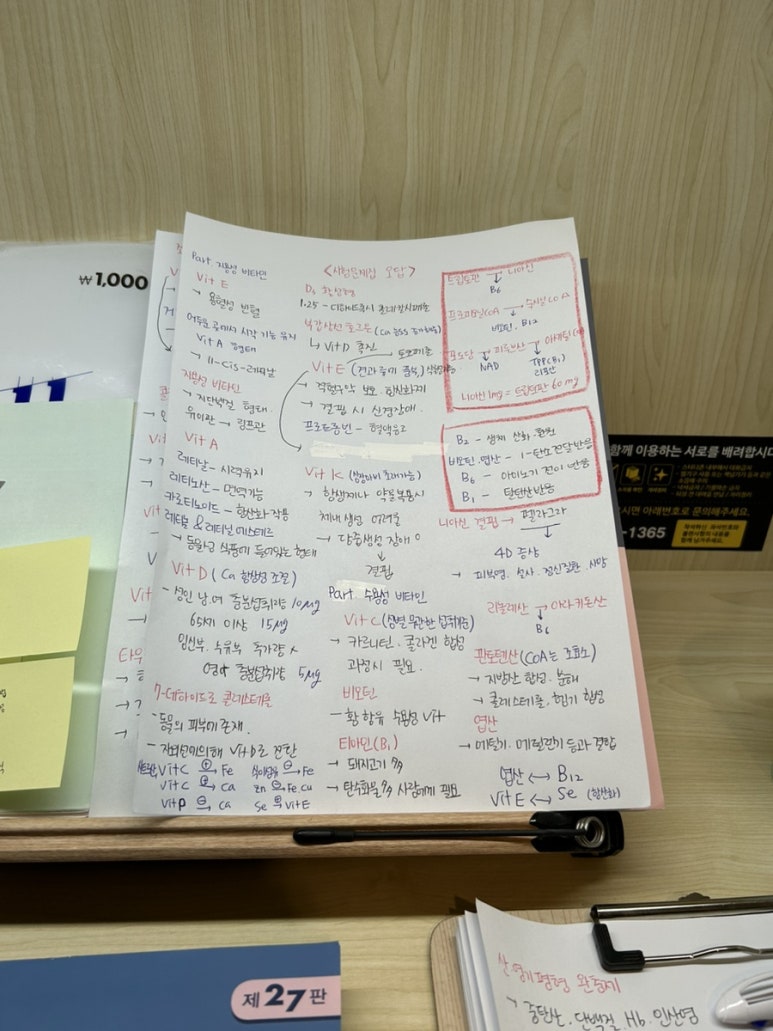 ₩1,000
<시험문제집 오답>
Part. 지용성 비타민
Vit E
→ 용혈성 빈혈
어두운 곳에서 시각 기능 유지
Vit A 형태
→ 11-cis-레티날
지용성 비타민
→ 지단백질 형태
유미관 → 림프관
Vit A
레티날 - 시력유지
레티노산 - 면역기능
카로티노이드 - 항산화 작용
레티놀 & 레티닐 에스테르
→ 동물성 식품에 들어있는 형태
Vit D (Ca 항상성 조절)
- 성인 남.여 충분섭취량 10μg
65세 이상 15μg
임신부. 수유부 추가량 x
영아 충분섭취량 5μg
7-데하이드로 콜레스테롤
- 동물의 피부에 존재.
- 자외선에 의해 Vit D로 전환
Vit C ⊕→ Fe
Vit C ⊕→ Ca
Vit D
⊖→ Fe
Zn ⊖→ Fe.Cu
Se Vit E
D₃ 활성형
1.25-
부갑상선호르몬
↳ Vit D 촉진
토코페롤
Vit E
→ 적혈구막 보호. 항산화제
→ 결핍 시 신경장애.
프로트롬빈 - 혈액응고
Vit K
→ 항생제나 약물복용시
체내생성 어려움
→ 담즙생성 장애 시
결핍
Part. 수용성 비타민
Vit C (성별 무관한 섭취기준)
→ 카르니틴. 콜라겐 합성
과정시 필요.
비오틴
- 황 함유 수용성 Vit
티아민 (B₁)
→ 돼지고기 多
→ 탄수화물 多 사람에게 필요
트립토판 → 니아신
B₆
프로피오닐CoA → 숙시닐CoA
비오틴. B₁₂
포도당 → 피루브산 → 아세틸
NAD
TPP(B₁)
리포산
니아신 1mg = 트립토판 60mg
B₂ - 생체 산화.환원
비오틴.엽산 - 1-탄소전달반응
B₆ - 아미노기 전이 반응
B₁ - 탈탄산반응
니아신 결핍 → 펠라그라
4D 증상
→ 피부염. 설사. 정신질환. 사망
리놀레산 → 아라키돈산
B₆
판토텐산 (CoA는 조효소)
→ 지방산 합성. 분해
→ 콜레스테롤. 헴기 합성
엽산
→ 메틸기. 메틸렌기 등과 결합
엽산 ↔ B₁₂
Vit E ↔ Se (항산화)
함께 이용하는 서로를 배려합시다
시면 아래번호로 문의해주세요.
-1365
제27판
산.염기평형 완충제
→ 중탄산. 단백질. Hb. 인산염